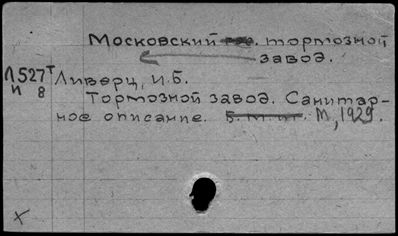 Московский гос. тормозной
завод.
Л527т Ливерц, И.Б.
И 8
Тормозной завод. Санитар-
ное описание. Б. м. и г. М, 1929.